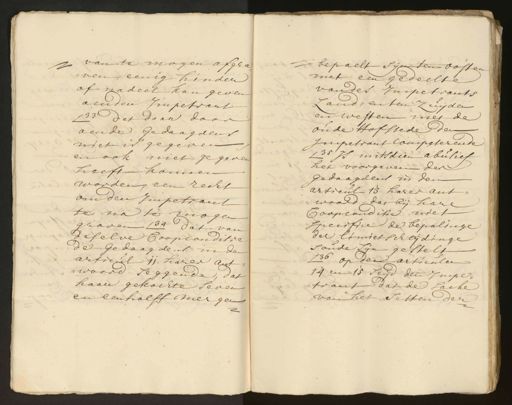 van te mogen afgra
ven eenig hinder
of nadeel kan geven
aenden Impetrant
133 Dat daar door
aende Gedaagdens
niet is gegeven
en ook niet gegeven
heeft konnen
worden een recht
om den Impetrant
te na te mogen
graven 134 Dat van
deselve Coopconditie
de Gedaagdens in de
articul 11 harer ant
woord seggende, dat
haar gekoste seven
en een halff mergen
bepaelt sijn ten oosten
met een gedeelte
van des Impetrants
Landt enten Zuyden
en westen met de
oude Hoffstede den
Impetrant competerende
135 Is mitsdien abusief
het voorgeven der
Gedaagdens in den
articul 13 harer ant
woord, dat bij hare
Coopconditie niet
specifice de bepalinge
der Limiet scheydinge
soude sijn gestelt
136 op den articulen
14 en 15 segt den Impe
trant dat de sake
van het setten der